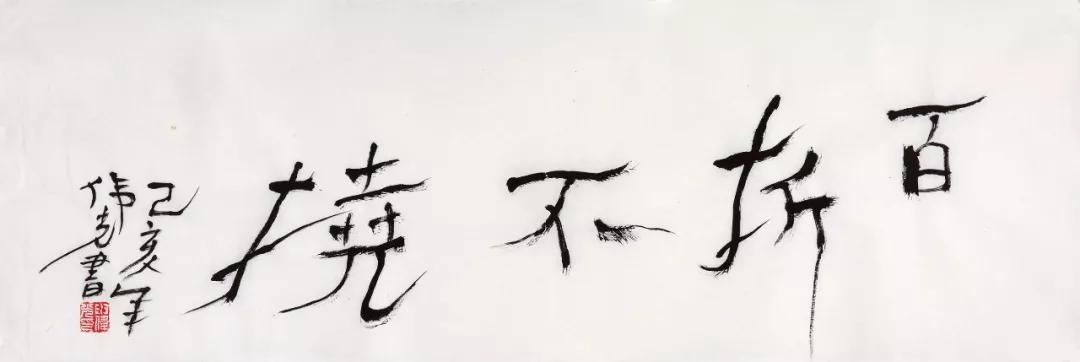 百折不撓
己亥年
伟光書